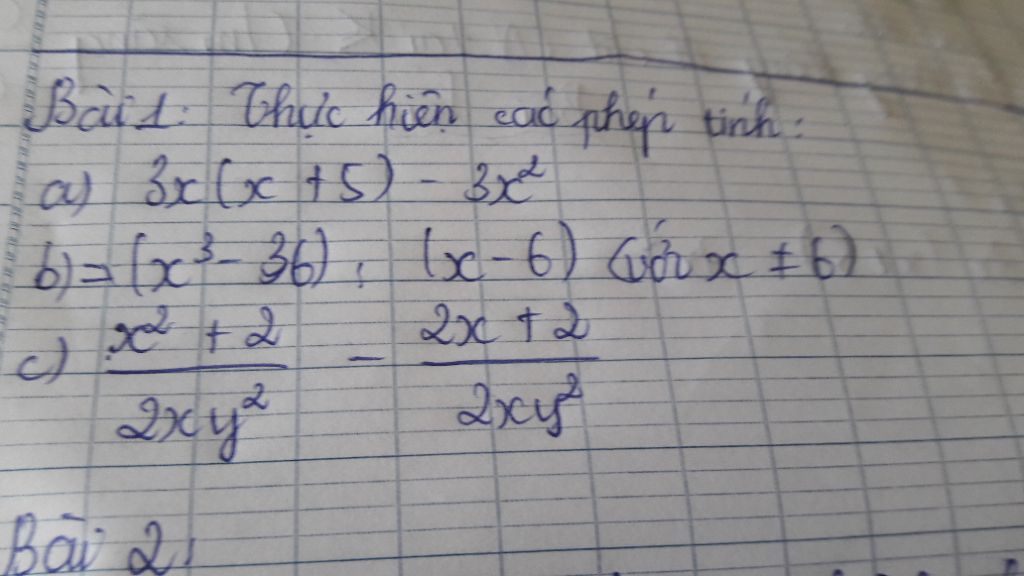 Bài 1: Thực hiện các phép tính:
a) 3x(x + 5) - 3x²
b) = (x³ - 36) : (x - 6) (với x ≠ 6)
c) x² + 2 / 2xy² - 2x + 2 / 2xy²
Bài 2: